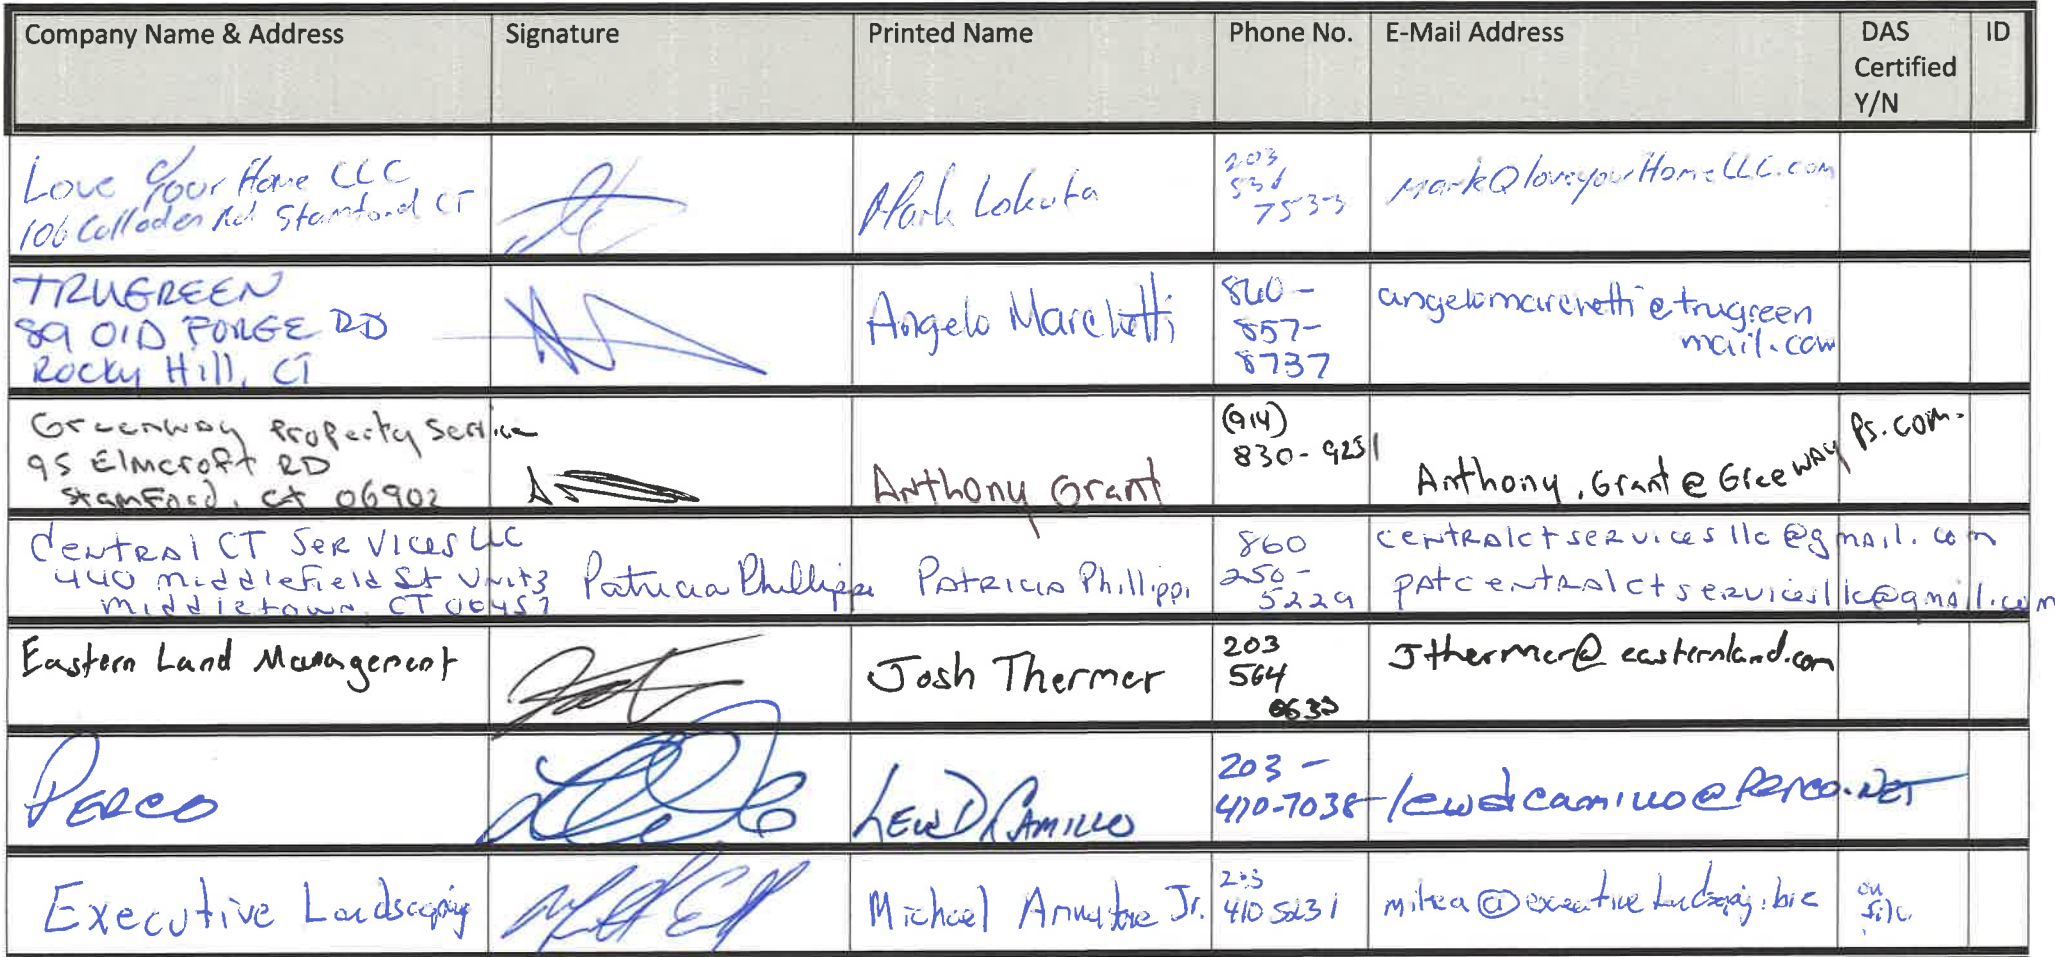 Company Name & Address Signature Printed Name Phone No. E-Mail Address DAS Certified Y/N ID
Love Your Home LLC
106 Colloden Rd Stamford CT
Mark Lokuta
203
7533
Mark@loveyourHomeLLC.com
TRUGREEN
89 OLD FORGE RD
Rocky Hill, CT
Angelo Marchetti
860-
857-
8737
angelomarchetti@trugreen
mail.com
Greenway Property Service
95 Elmcroft RD
Stamford, ct 06902
Anthony Grant
(914)
830-9251
Anthony.Grant@GreewayPs.com.
Central CT Services LLC
440 Middlefield St Unit 3
Middletown, CT 06457
Patricia Phillippi
Patricia Phillippi
860
250-
5229
centralctservicesllc@gmail.com
patcentralctservicesllc@gmail.com
Eastern Land Management
Josh Thermer
203
564
Jthermer@easternland.com
PERCO
Lew DiCamillo
203-
410-7038
lewdicamillo@Perco.NET
Executive Landscaping
Michael Jr.
203
410 5231
mikea@executivelandscaping.biz
on
file